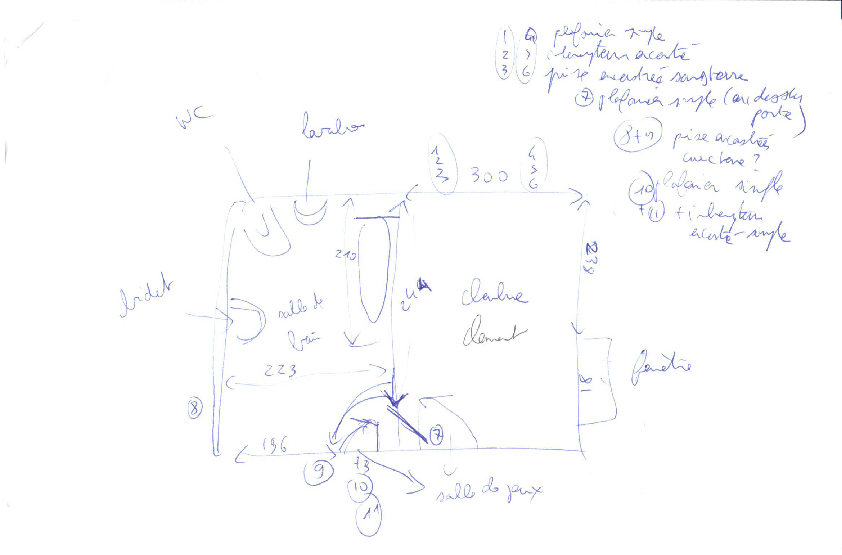 1 4 plafonier simple
2 5 interrupteur encastré
3 6 prise encastrée sans terre
7 plafonier simple (au dessus
porte)
8+9 prise encastrée
avec terre ?
10 plafonier simple
+11 + interrupteur
encastré simple
WC
lavabo
1
2
3
300
4
5
6
210
244
239
bidet
salle de
bain
chambre
clement
223
fenêtre
8
196
9
7
10
11
salle de jeux